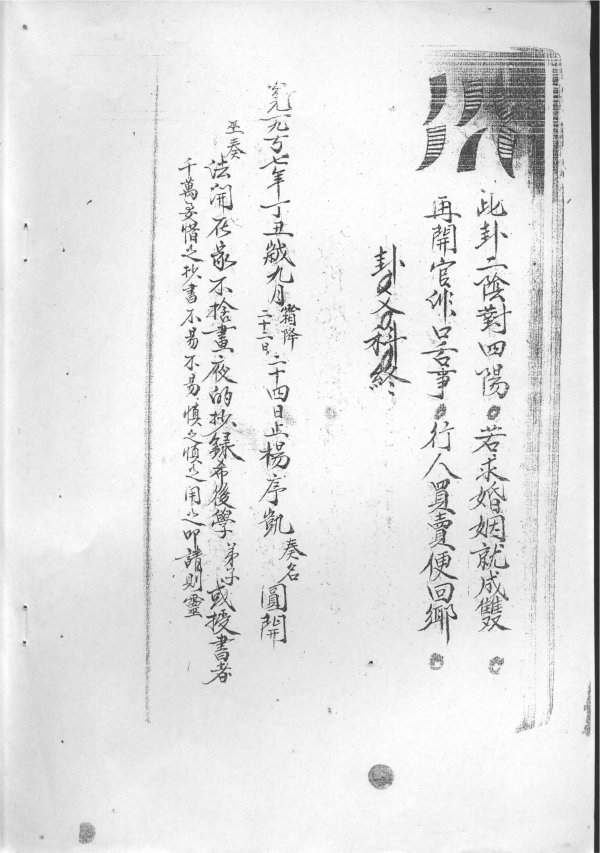 此卦二陰對四陽。若求婚姻就成雙。
再開官休口舌事。行人買賣便回鄉。
卦爻科終
公元一九九七年丁丑歲九月霜降二十二日二十四日止楊序凱奏名圓開
巫奏法開居家不捨晝夜的抄錄希後學弟子或授書者
千萬愛惜之抄書不易不易慎之慎之用之叩請則靈